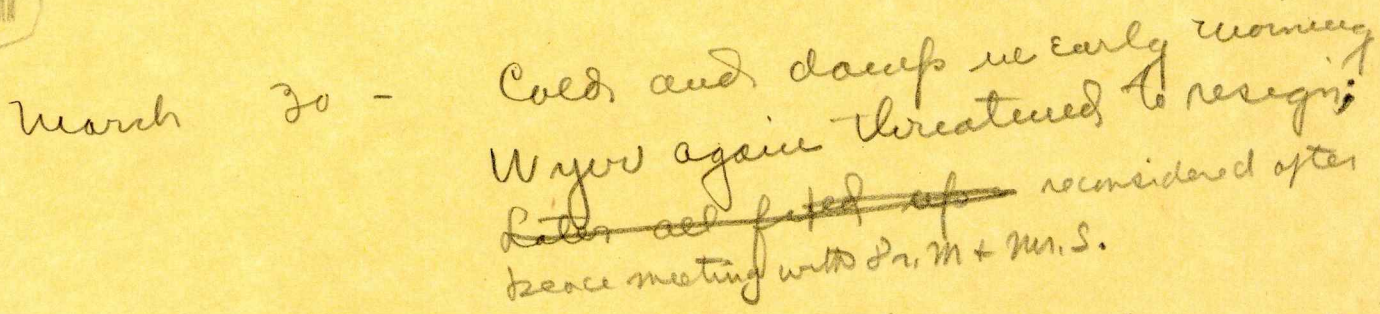 March 30 - Cold and damp in early morning
Wyer again threatened to resign;
~~Later all fixed up~~ reconsidered after
peace meeting with Dr. M + Mr. S.